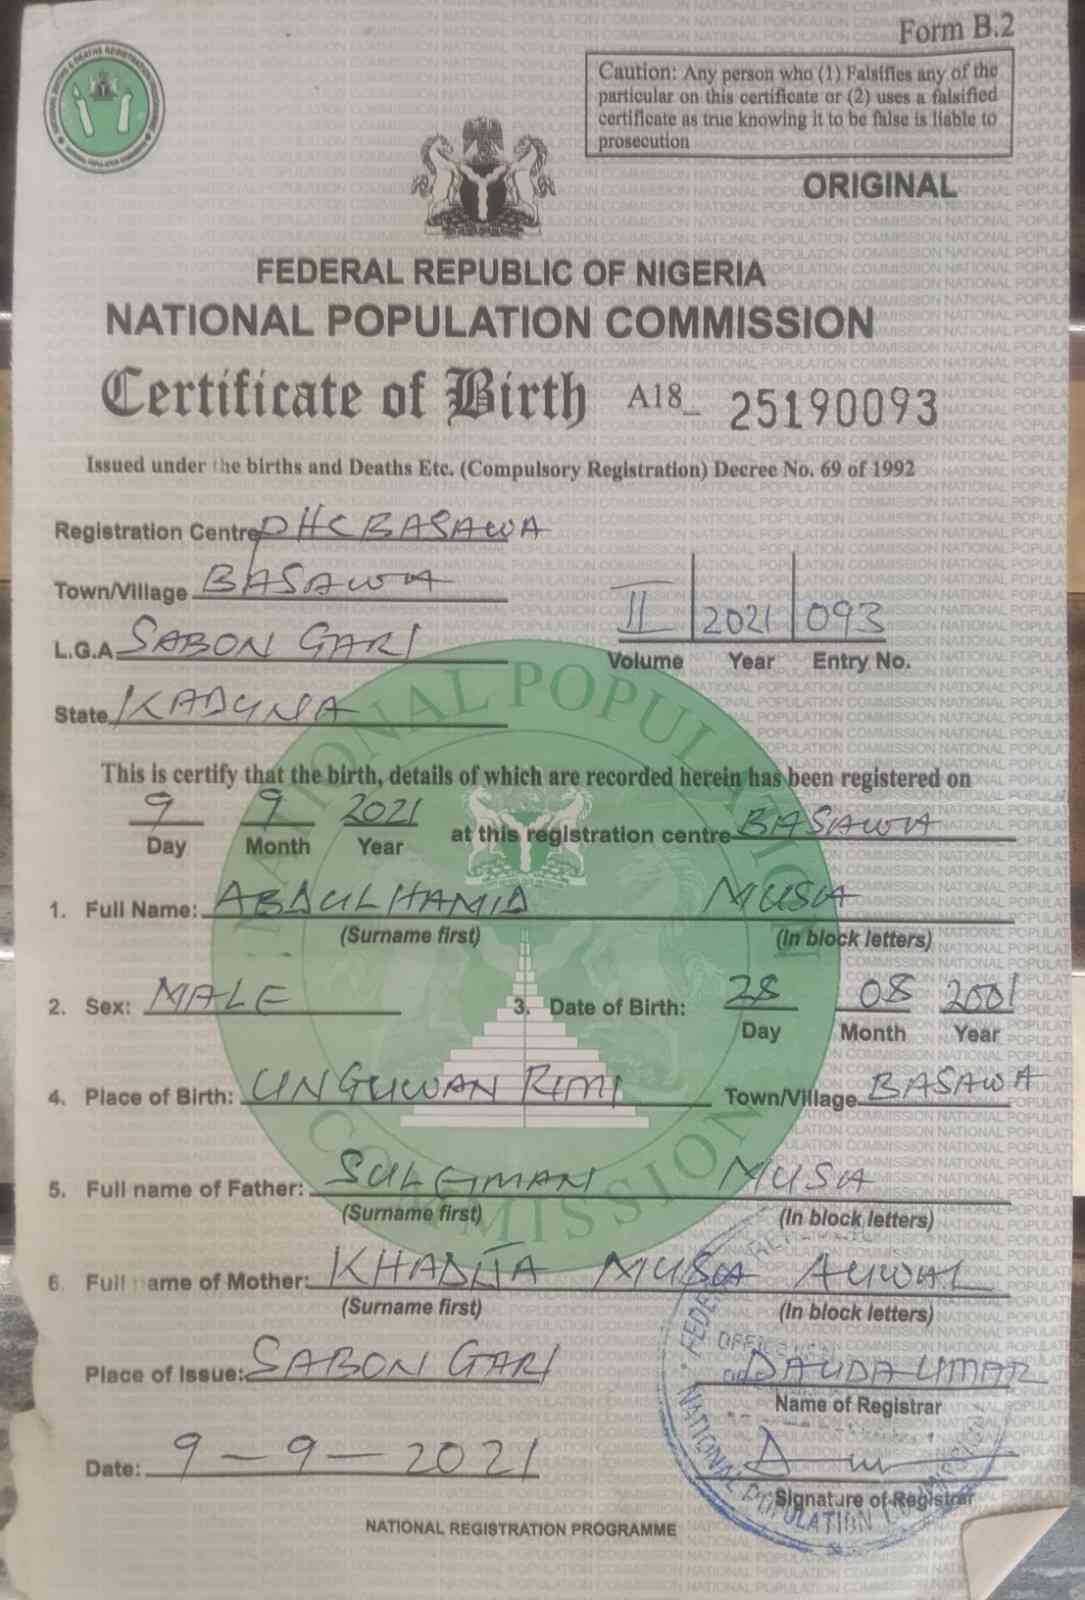 Form B.2
Caution: Any person who (1) Falsifies any of the
particular on this certificate or (2) uses a falsified
certificate as true knowing it to be false is liable to
prosecution
ORIGINAL
FEDERAL REPUBLIC OF NIGERIA
NATIONAL POPULATION COMMISSION
Certificate of Birth A18_ 25190093
Issued under the births and Deaths Etc. (Compulsory Registration) Decree No. 69 of 1992
Registration Centre PHC BASAWA
Town/Village BASAWA
II 2021 093
L.G.A SABON GARI
Volume Year Entry No.
State KADUNA
This is certify that the birth, details of which are recorded herein has been registered on
9 9 2021 at this registration centre BASAWA
Day Month Year
1. Full Name: ABDULHAMID MUSA
(Surname first) (In block letters)
2. Sex: MALE 3. Date of Birth: 28 08 2001
Day Month Year
4. Place of Birth: UNGUWAN RIMI Town/Village BASAWA
5. Full name of Father: SULEIMAN MUSA
(Surname first) (In block letters)
6. Full name of Mother: KHADIJA MUSA AUWAL
(Surname first) (In block letters)
Place of Issue: SABON GARI DAUDA UMAR
Name of Registrar
Date: 9-9-2021
Signature of Registrar
NATIONAL REGISTRATION PROGRAMME
NATIONAL POPULATION COMMISSION